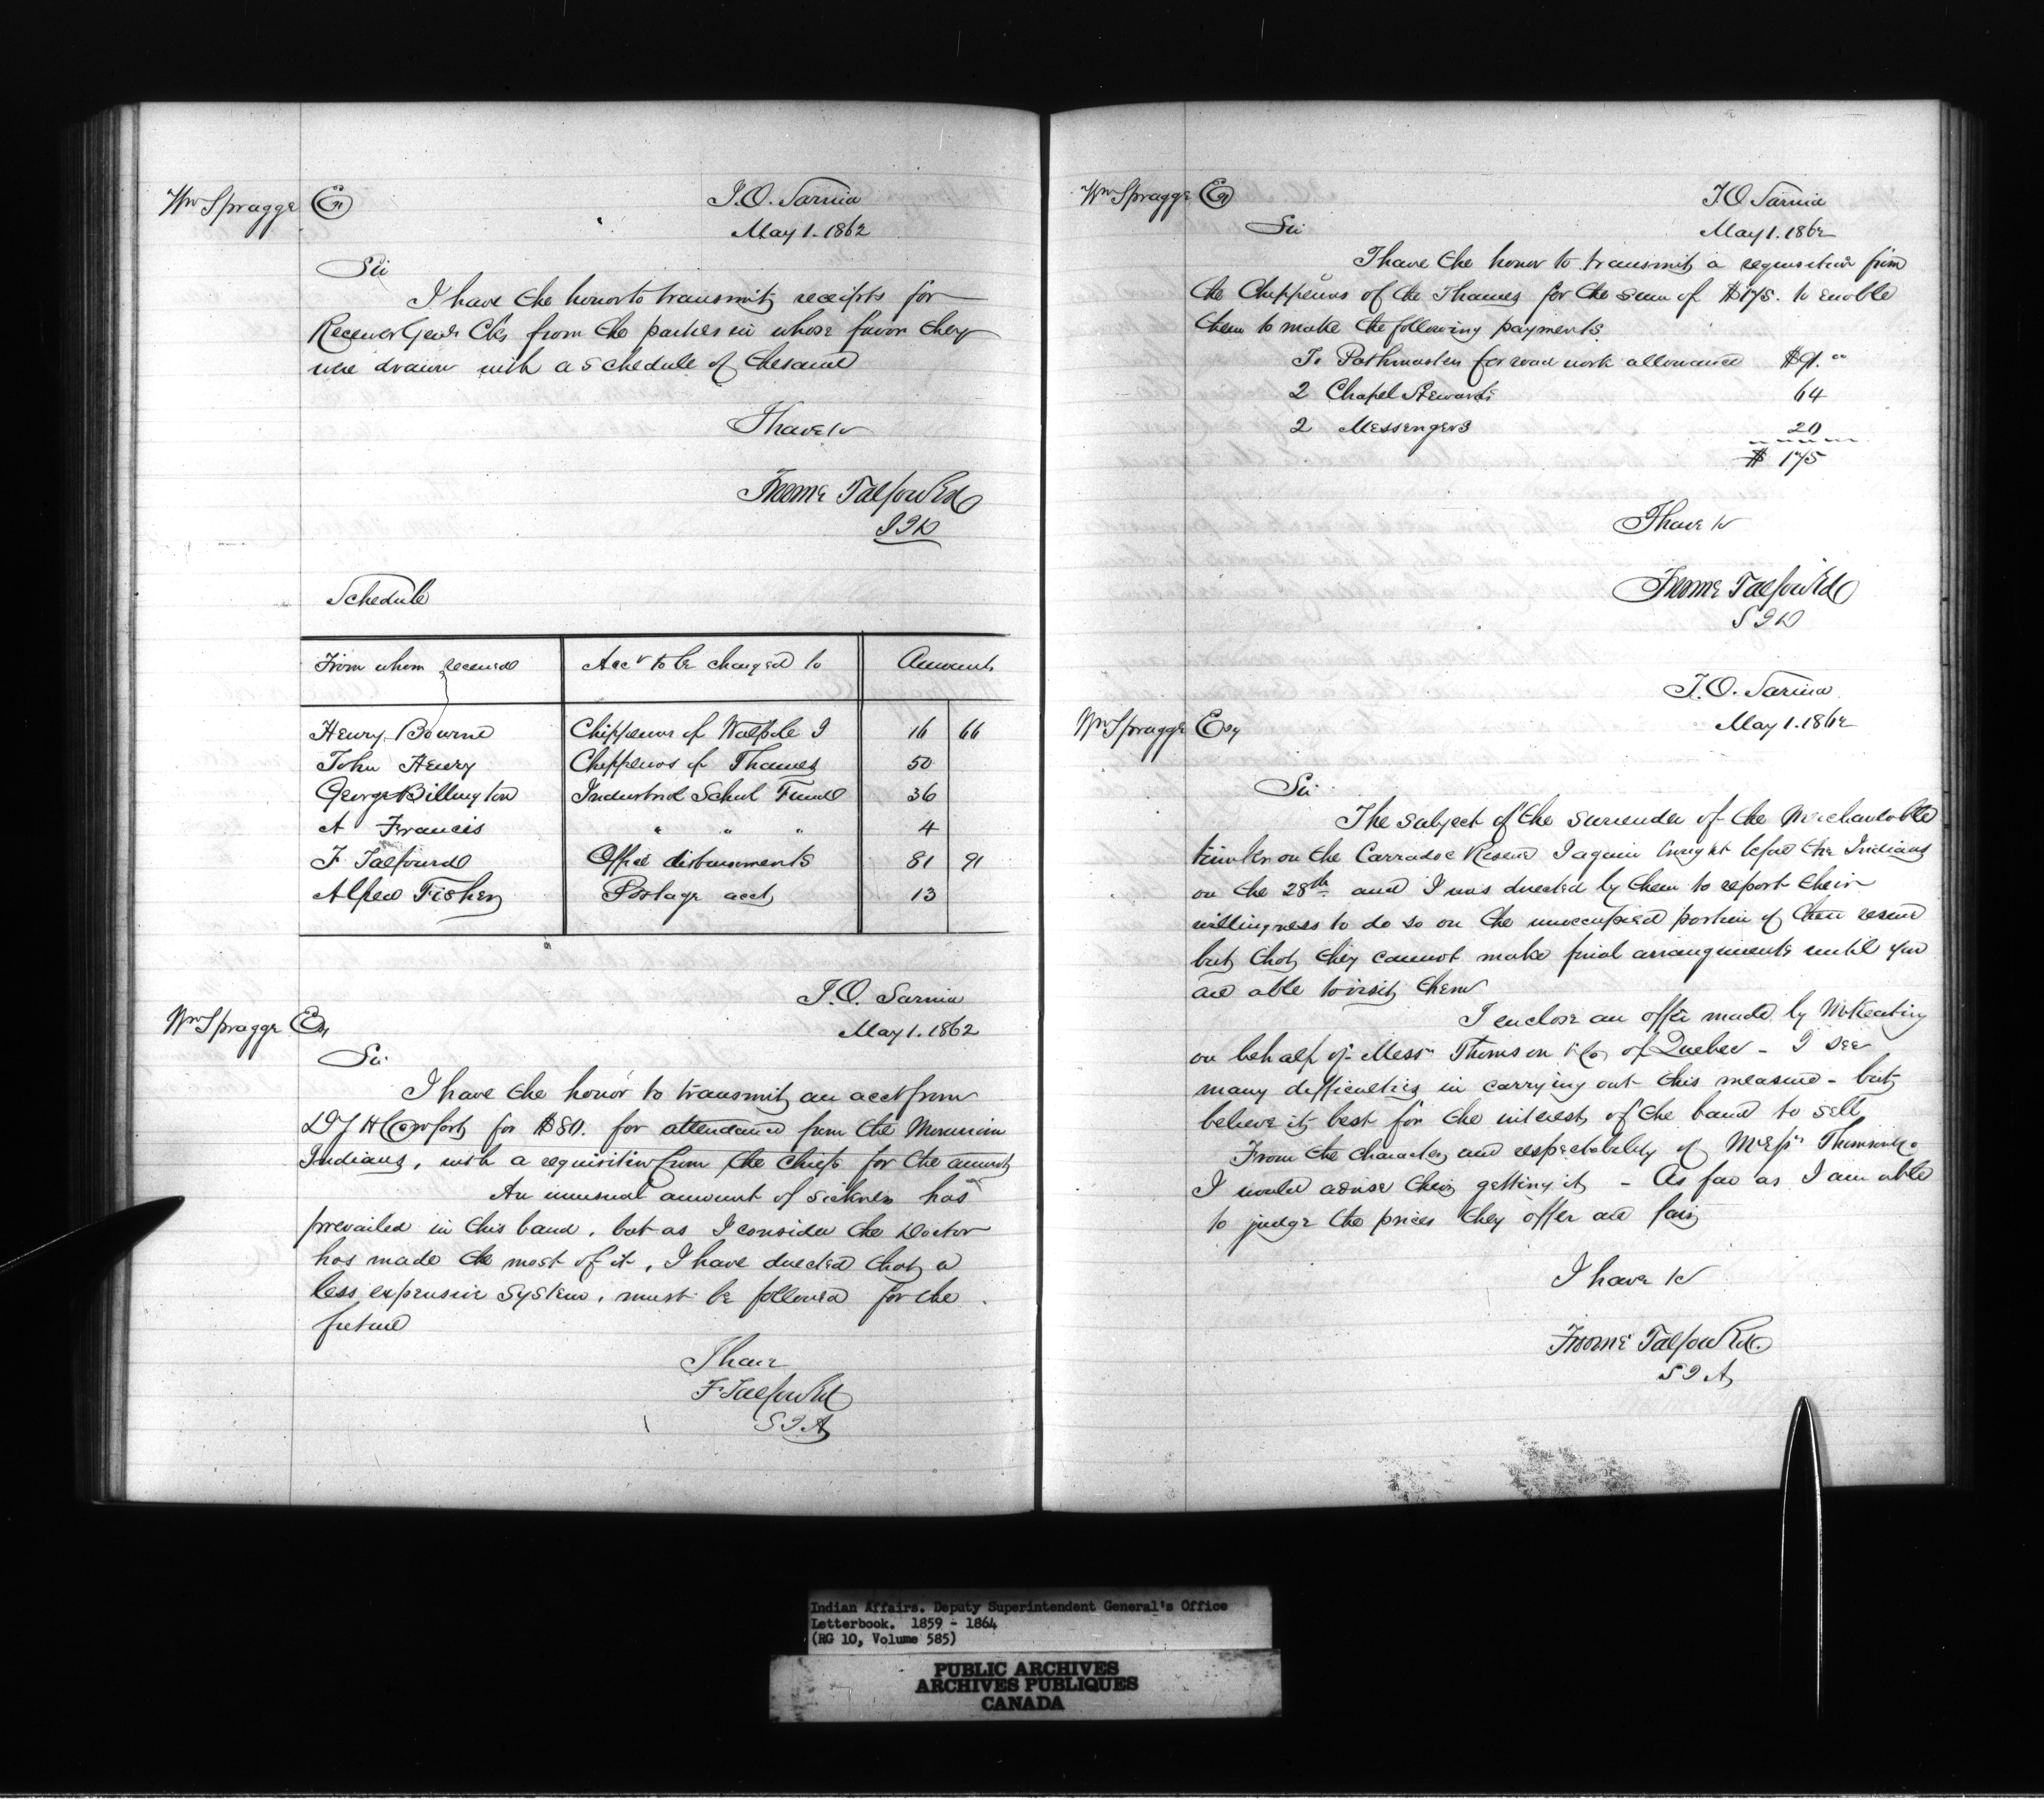 Wm Spragge Esq
I.O. Sarnia
May 1. 1862
Sir
I have the honor to transmit receipts for
Receiver Genls Cks from the parties in whose favor they
were drawn with a schedule of the same
I have &c
Froome Talfourd
Schedule
From whom received Acct to be charged to Amounts
Henry Bourne Chippewas of Walpole I 16 66
John Henry Chippewas of Thames 50
George Billington Industrial School Fund 36
A Francis " " " 4
F Talfourd Office disbursements 81 91
Alfred Fisher Postage acct 13
I.O. Sarnia
Wm Spragge Esq
May 1. 1862
Sir
I have the honor to transmit an acct from
for $80. for attendance from the Moravian
Indians, with a requisition from the Chiefs for the amount
An unusual amount of sickness has
prevailed in this band, but as I consider the Doctor
has made the most of it, I have directed that a
less expensive system, must be followed for the
future
I have
F Talfourd
S I A
Wm Spragge Esq
I.O. Sarnia
May 1. 1862
Sir
I have the honor to transmit a requisition from
the Chippewas of the Thames for the sum of $175. to enable
them to make the following payments.
To Pathmasters for road work allowance $91. "
2 Chapel Stewards 64
2 Messengers 20
$ 175
I have &c
Froome Talfourd
I.O. Sarnia
Wm Spragge Esq
May 1. 1862
Sir
The subject of the surrender of the Merchantable
timber on the Carradoc Reserve I again brought before the Indians
on the 28th and I was directed by them to report their
willingness to do so on the unoccupied portion of their reserve
but that they cannot make final arrangements until you
are able to visit them
I enclose an offer made by Mr Keating
on behalf of Messrs Thomson & Co of Quebec - I see
many difficulties in carrying out this measure - but
believe it best for the interests of the band to sell
From the character and respectability of Messrs Thomson & Co
I would advise their getting it - As far as I am able
to judge the prices they offer are fair
I have &c
Froome Talfourd.
S I A
Indian Affairs. Deputy Superintendent General's Office
Letterbook. 1859 - 1864
(RG 10, Volume 585)
PUBLIC ARCHIVES
ARCHIVES PUBLIQUES
CANADA